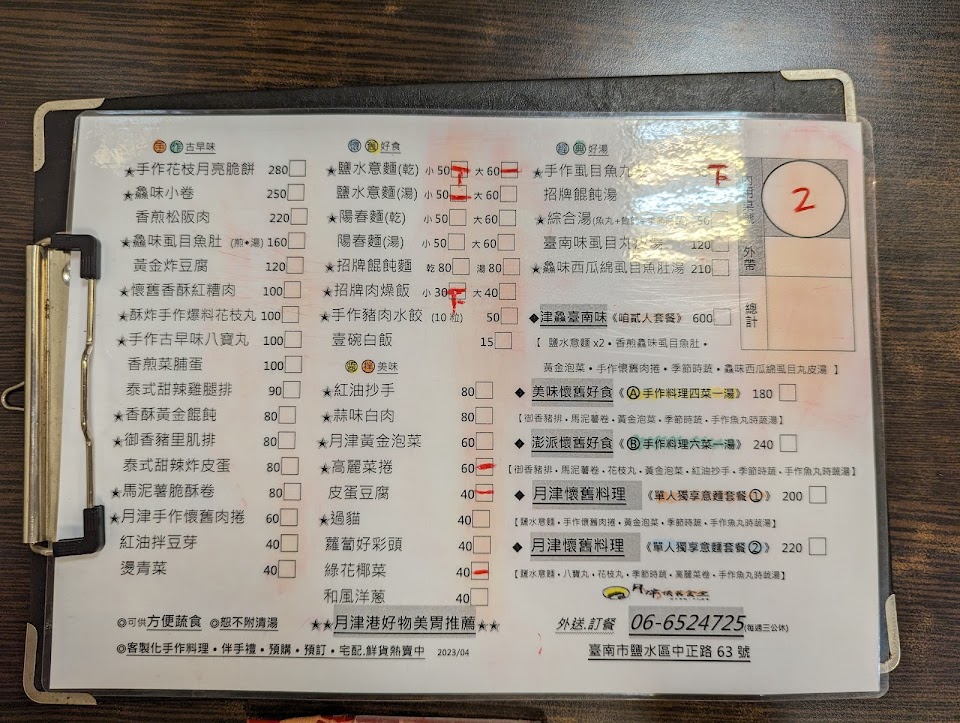 手作古早味
★手作花枝月亮脆餅 280
★鱻味小卷 250
香煎松阪肉 220
★鱻味虱目魚肚 (煎•湯) 160
黃金炸豆腐 120
★懷舊香酥紅糟肉 100
★酥炸手作爆料花枝丸 100
★手作古早味八寶丸 100
香煎菜脯蛋 100
泰式甜辣雞腿排 90
★香酥黃金餛飩 80
★御香豬里肌排 80
泰式甜辣炸皮蛋 80
★馬泥薯脆酥卷 80
★月津手作懷舊肉捲 60
紅油拌豆芽 40
燙青菜 40
◎可供方便蔬食 ◎恕不附清湯
◎客製化手作料理•伴手禮•預購•預訂•宅配.鮮貨熱賣中 2023/04
懷舊好食
★鹽水意麵(乾) 小 50 下 大 60
鹽水意麵(湯) 小 50 大 60
★陽春麵(乾) 小 50 大 60
陽春麵(湯) 小 50 大 60
★招牌餛飩麵 乾 80 湯 80
★招牌肉燥飯 小 30 下 大 40
★手作豬肉水餃 (10 粒) 50
壹碗白飯 15
美味
★紅油抄手 80
★蒜味白肉 80
★月津黃金泡菜 60
★高麗菜捲 60
皮蛋豆腐 40
★過貓 40
蘿蔔好彩頭 40
綠花椰菜 40
和風洋蔥 40
★★月津港好物美胃推薦★★
經典好湯
★手作虱目魚丸 下
招牌餛飩湯
★綜合湯(魚丸+ 50
臺南味虱目丸 湯 120
★鱻味西瓜綿虱目魚肚湯 210
◆津鱻臺南味《咱貳人套餐》 600
【 鹽水意麵 x2•香煎鱻味虱目魚肚•
黃金泡菜•手作懷舊肉捲•季節時蔬•鱻味西瓜綿虱目丸皮湯 】
◆ 美味懷舊好食《Ⓐ手作料理四菜一湯》 180
【御香豬排•馬泥薯卷•黃金泡菜•季節時蔬•手作魚丸時蔬湯】
◆ 澎派懷舊好食《Ⓑ手作料理六菜一湯》 240
【御香豬排•馬泥薯卷•花枝丸•黃金泡菜•紅油抄手•季節時蔬•手作魚丸時蔬湯】
◆ 月津懷舊料理 《單人獨享意麵套餐①》 200
【鹽水意麵•手作懷舊肉捲•黃金泡菜•季節時蔬•手作魚丸時蔬湯】
◆ 月津懷舊料理 《單人獨享意麵套餐②》 220
【鹽水意麵•八寶丸•花枝丸•季節時蔬•高麗菜卷•手作魚丸時蔬湯】
外送.訂餐 06-6524725(每週三公休)
臺南市鹽水區中正路 63 號
內用桌號 2
外帶
總計